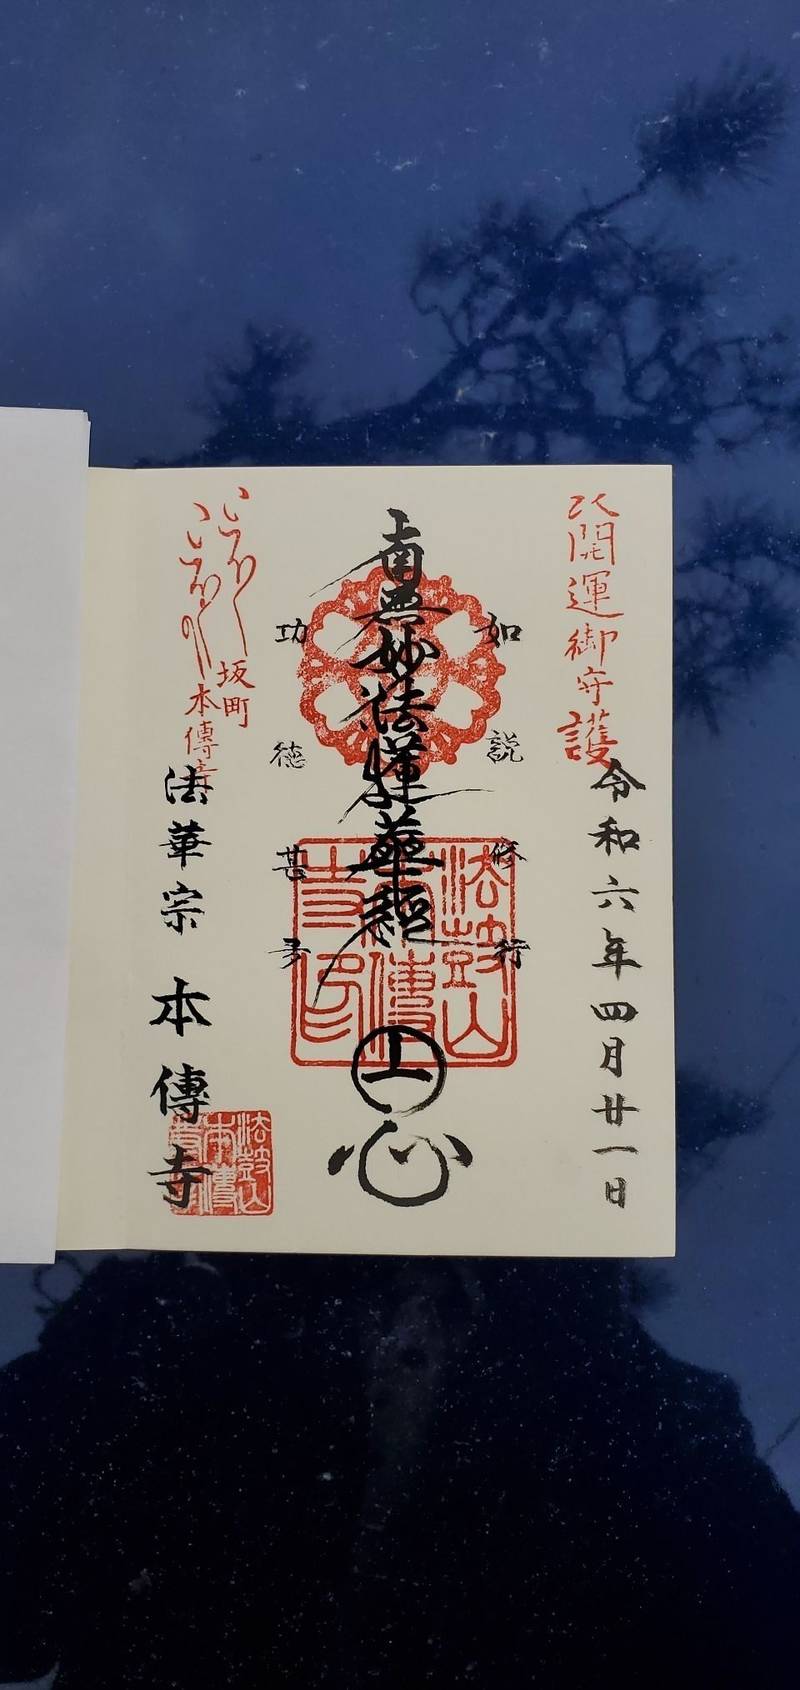 開運御守護
令和六年四月廿一日
如説修行
南無妙法蓮華経
心
功徳甚多
法鼓山
本傳
寺印
坂町
本傳寺
法華宗
本傳寺
法鼓山
本傳